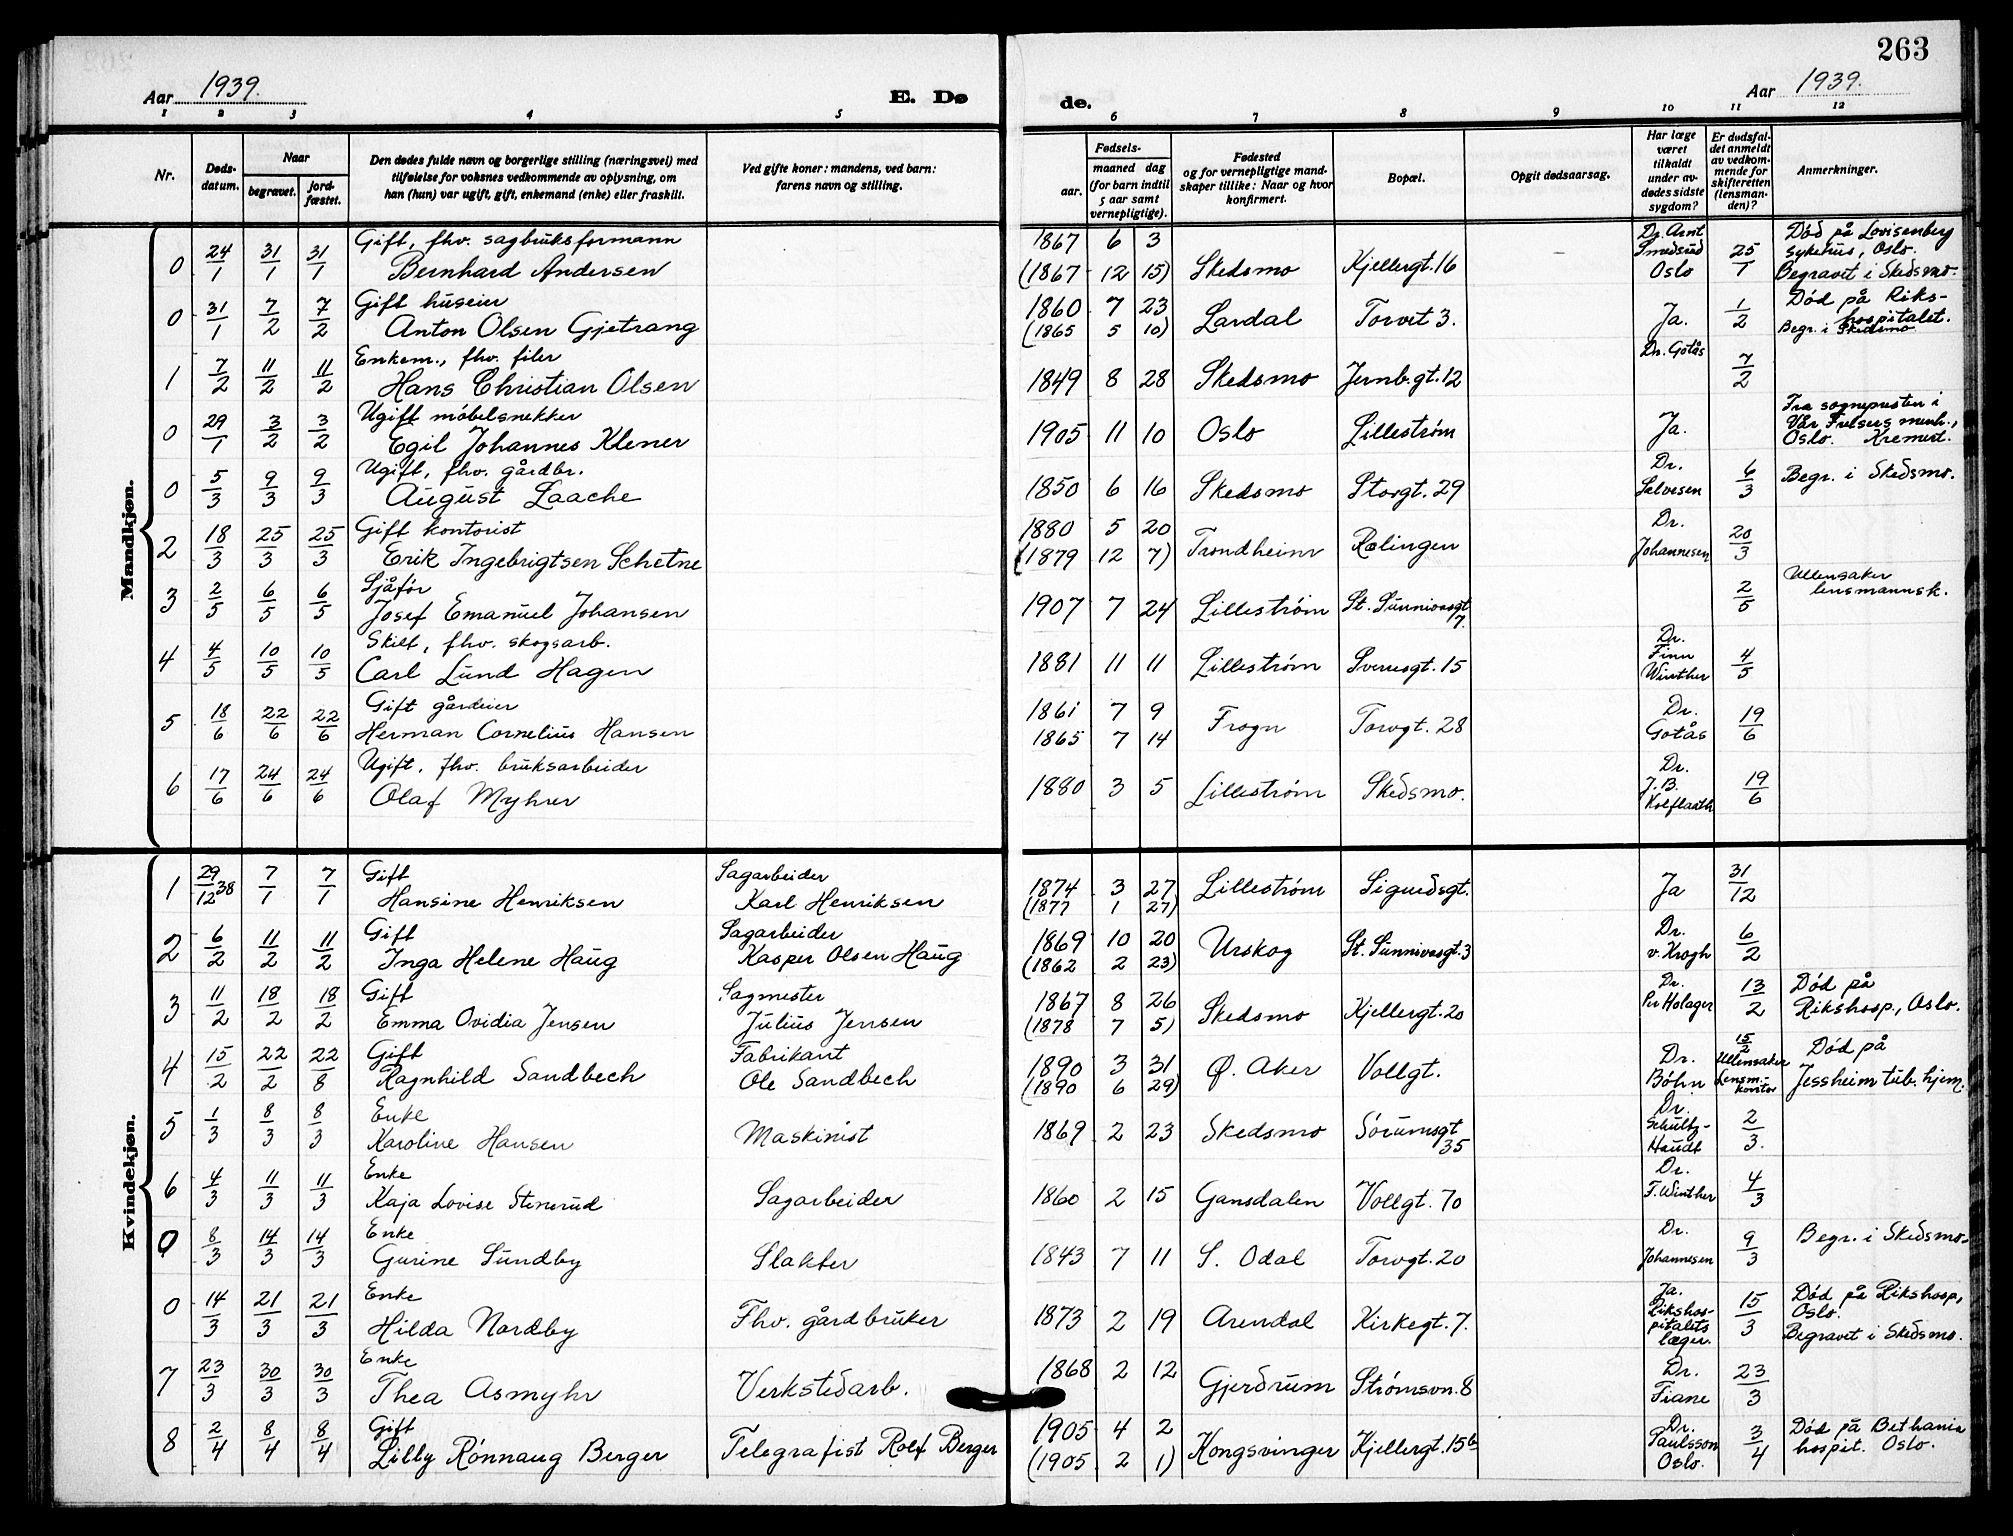 263
Aar 1939. E. Dø de. Aar 1939.
1 2 3 4 5 6 7 8 9 10 11 12
Nr. Døds-datum. Naar begravet. jord-fæstet. Den dødes fulde navn og borgerlige stilling (næringsvei) med tilføielse for voksnes vedkommende av oplysning, om han (hun) var ugift, gift, enkemand (enke) eller fraskilt. Ved gifte koner: mandens, ved barn: farens navn og stilling. Fødsels- aar. maaned dag (for barn indtil 5 aar samt vernepligtige). Fødested og for vernepligtige mand-skaper tillike: Naar og hvor konfirmert. Bopæl. Opgit dødsaarsag. Har læge været tilkaldt under av-dødes sidste sygdom? Er dødsfal-det anmeldt av vedkom-mende for skifteretten (lensman-den)? Anmerkninger.
Mandkjøn.
0 24/1 31/1 31/1 Gift, fhv. sagbruksformann Bernhard Andersen 1867 6 3 (1867 12 15) Skedsmo Kjellergt. 16 Dr. Arnt Smedsrud Oslo 25/1 Død på Lovisenberg sykehus, Oslo. Begravet i Skedsmo.
0 31/1 7/2 7/2 Gift huseier Anton Olsen Gjetrang 1860 7 23 (1865 5 10) Lardal Torvet 3. Ja. 1/2 Død på Riks-hospitalet. Begr. i Skedsmo
1 7/2 11/2 11/2 Enkem., fhv. filer Hans Christian Olsen 1849 8 28 Skedsmo Jernb.gt. 12 Dr. Gotås 7/2
0 29/1 3/2 3/2 Ugift møbelsnekker Egil Johannes Klener 1905 11 10 Oslo Lillestrøm Ja. Fra sognepresten i Vår Frelsers menh., Oslo. Kremert.
0 5/3 9/3 9/3 Ugift, fhv. gårdbr. August Laache 1850 6 16 Skedsmo Storgt. 29 Dr. Salvesen 6/3 Begr. i Skedsmo.
2 18/3 25/3 25/3 Gift kontorist Erik Ingebrigtsen Schetne 1880 5 20 (1879 12 7) Trondheim Rælingen Dr. Johannesen 20/3
3 2/5 6/5 6/5 Sjåfør Josef Emanuel Johansen 1907 7 24 Lillestrøm St. Sunnivasgt 7. 2/5 Ullensaker lensmannsk.
4 4/5 10/5 10/5 Skilt, fhv. skogsarb. Carl Lund Hagen 1881 11 11 Lillestrøm Sverresgt. 15 Dr. Finn Winther 4/5
5 18/6 22/6 22/6 Gift gårdeier Herman Cornelius Hansen 1861 7 9 1865 7 14 Frogn Torvgt. 28 Dr. Gotås 19/6
6 17/6 24/6 24/6 Ugift, fhv. bruksarbeider Olaf Myhrer 1880 3 5 Lillestrøm Skedsmo. Dr. J. B. Kolflaath 19/6
Kvindekjøn.
1 29/12 38 7/1 7/1 Gift Hansine Henriksen Sagarbeider Karl Henriksen 1874 3 27 (1877 1 27) Lillestrøm Sigurdsgt. Ja 31/12
2 6/2 11/2 11/2 Gift Inga Helene Haug Sagarbeider Kasper Olsen Haug 1869 10 20 (1862 2 23) Urskog St. Sunnivasgt. 3 Dr. v. Krogh 6/2
3 11/2 18/2 18/2 Gift Emma Ovidia Jensen Sagmester Julius Jensen 1867 8 26 (1878 7 5) Skedsmo Kjellergt. 20 Dr. Per Holager 13/2 Død på Rikshosp., Oslo.
4 15/2 22/2 22/8 Gift Ragnhild Sandbech Fabrikant Ole Sandbech 1890 3 31 (1890 6 29) Ø. Aker Vollgt. Dr. Bøhn 15/2 Ullensaker Lensm.-kontor Død på Jessheim tub. hjem.
5 1/3 8/3 8/3 Enke Karoline Hansen Maskinist 1869 2 23 Skedsmo Sørumsgt 35 Dr. Schultz-Haudt 2/3.
6 4/3 11/3 11/3 Enke Kaja Lovise Stenerud Sagarbeider 1860 2 15 Gansdalen Vollgt. 70 Dr. F. Winther 4/3
0 8/3 14/3 14/3 Enke Gurine Sundby Slakter 1843 7 11 S. Odal Torvgt. 20 Dr. Johannesen 9/3 Begr. i Skedsmo.
0 14/3 21/3 21/3 Enke Hilda Nordby Fhv. gårdbruker 1873 2 19 Arendal Kirkegt. 7. Ja. Rikshos-pitalets læger. 15/3 Død på Rikshosp, Oslo. Begravet i Skedsmo.
7 23/3 30/3 30/3 Enke Thea Asmyhr Verkstedarb. 1868 2 12 Gjerdrum Strømsvn. 8 Dr. Fiane 23/3
8 2/4 8/4 8/4 Gift Lilly Rønnaug Berger Telegrafist Rolf Berger 1905 4 2 (1905 2 1) Kongsvinger Kjellergt. 15b Dr. Paulsson Oslo. 3/4 Død på Bethania hospit. Oslo.